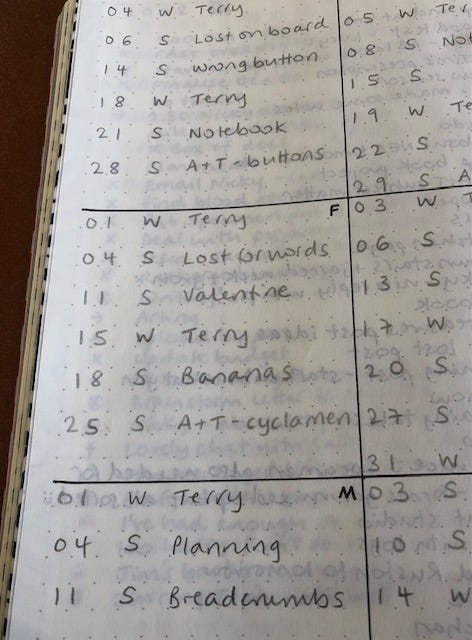 04 W Terry
06 S Lost on board
14 S wrong button
18 W Terry
21 S Notebook
28 S A+T - buttons
01 W Terry F
04 S Lost for words
11 S Valentine
15 W Terry
18 S Bananas
25 S A+T - cyclamen
01 W Terry M
04 S Planning
11 S Breadcrumbs
05 W Ter
08 S Not
15 S
19 W Te
22 S
29 S A
03 W T
06 S
13 S
17 W
20 S
27 S
31 W
03 S
10 S
14 W